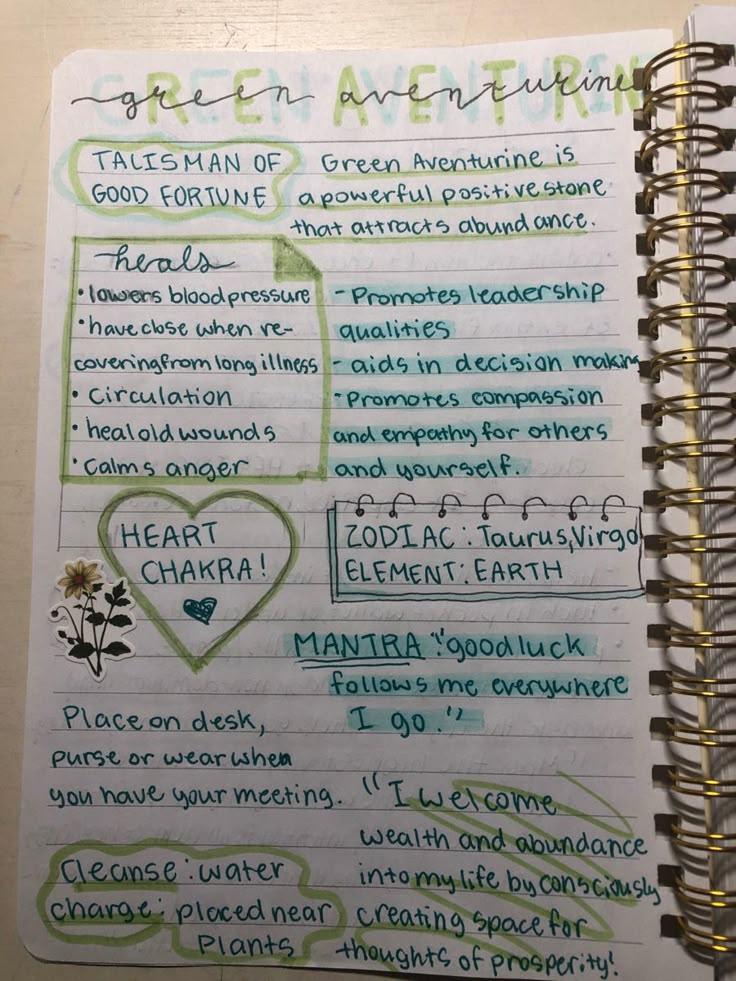 green aventurine
GREEN AVENTURINE
TALISMAN OF
GOOD FORTUNE
Green Aventurine is
a powerful positive stone
that attracts abundance.
heals
• lowers blood pressure
• have close when re-
covering from long illness
• circulation
• heal old wounds
• calms anger
- Promotes leadership
qualities
- aids in decision making
- Promotes compassion
and empathy for others
and yourself.
HEART
CHAKRA!
ZODIAC: Taurus, Virgo
ELEMENT: EARTH
MANTRA: "good luck
follows me everywhere
I go."
Place on desk,
purse or wear when
you have your meeting.
"I welcome
wealth and abundance
into my life by consciously
creating space for
thoughts of prosperity!
Cleanse: water
charge: placed near
Plants